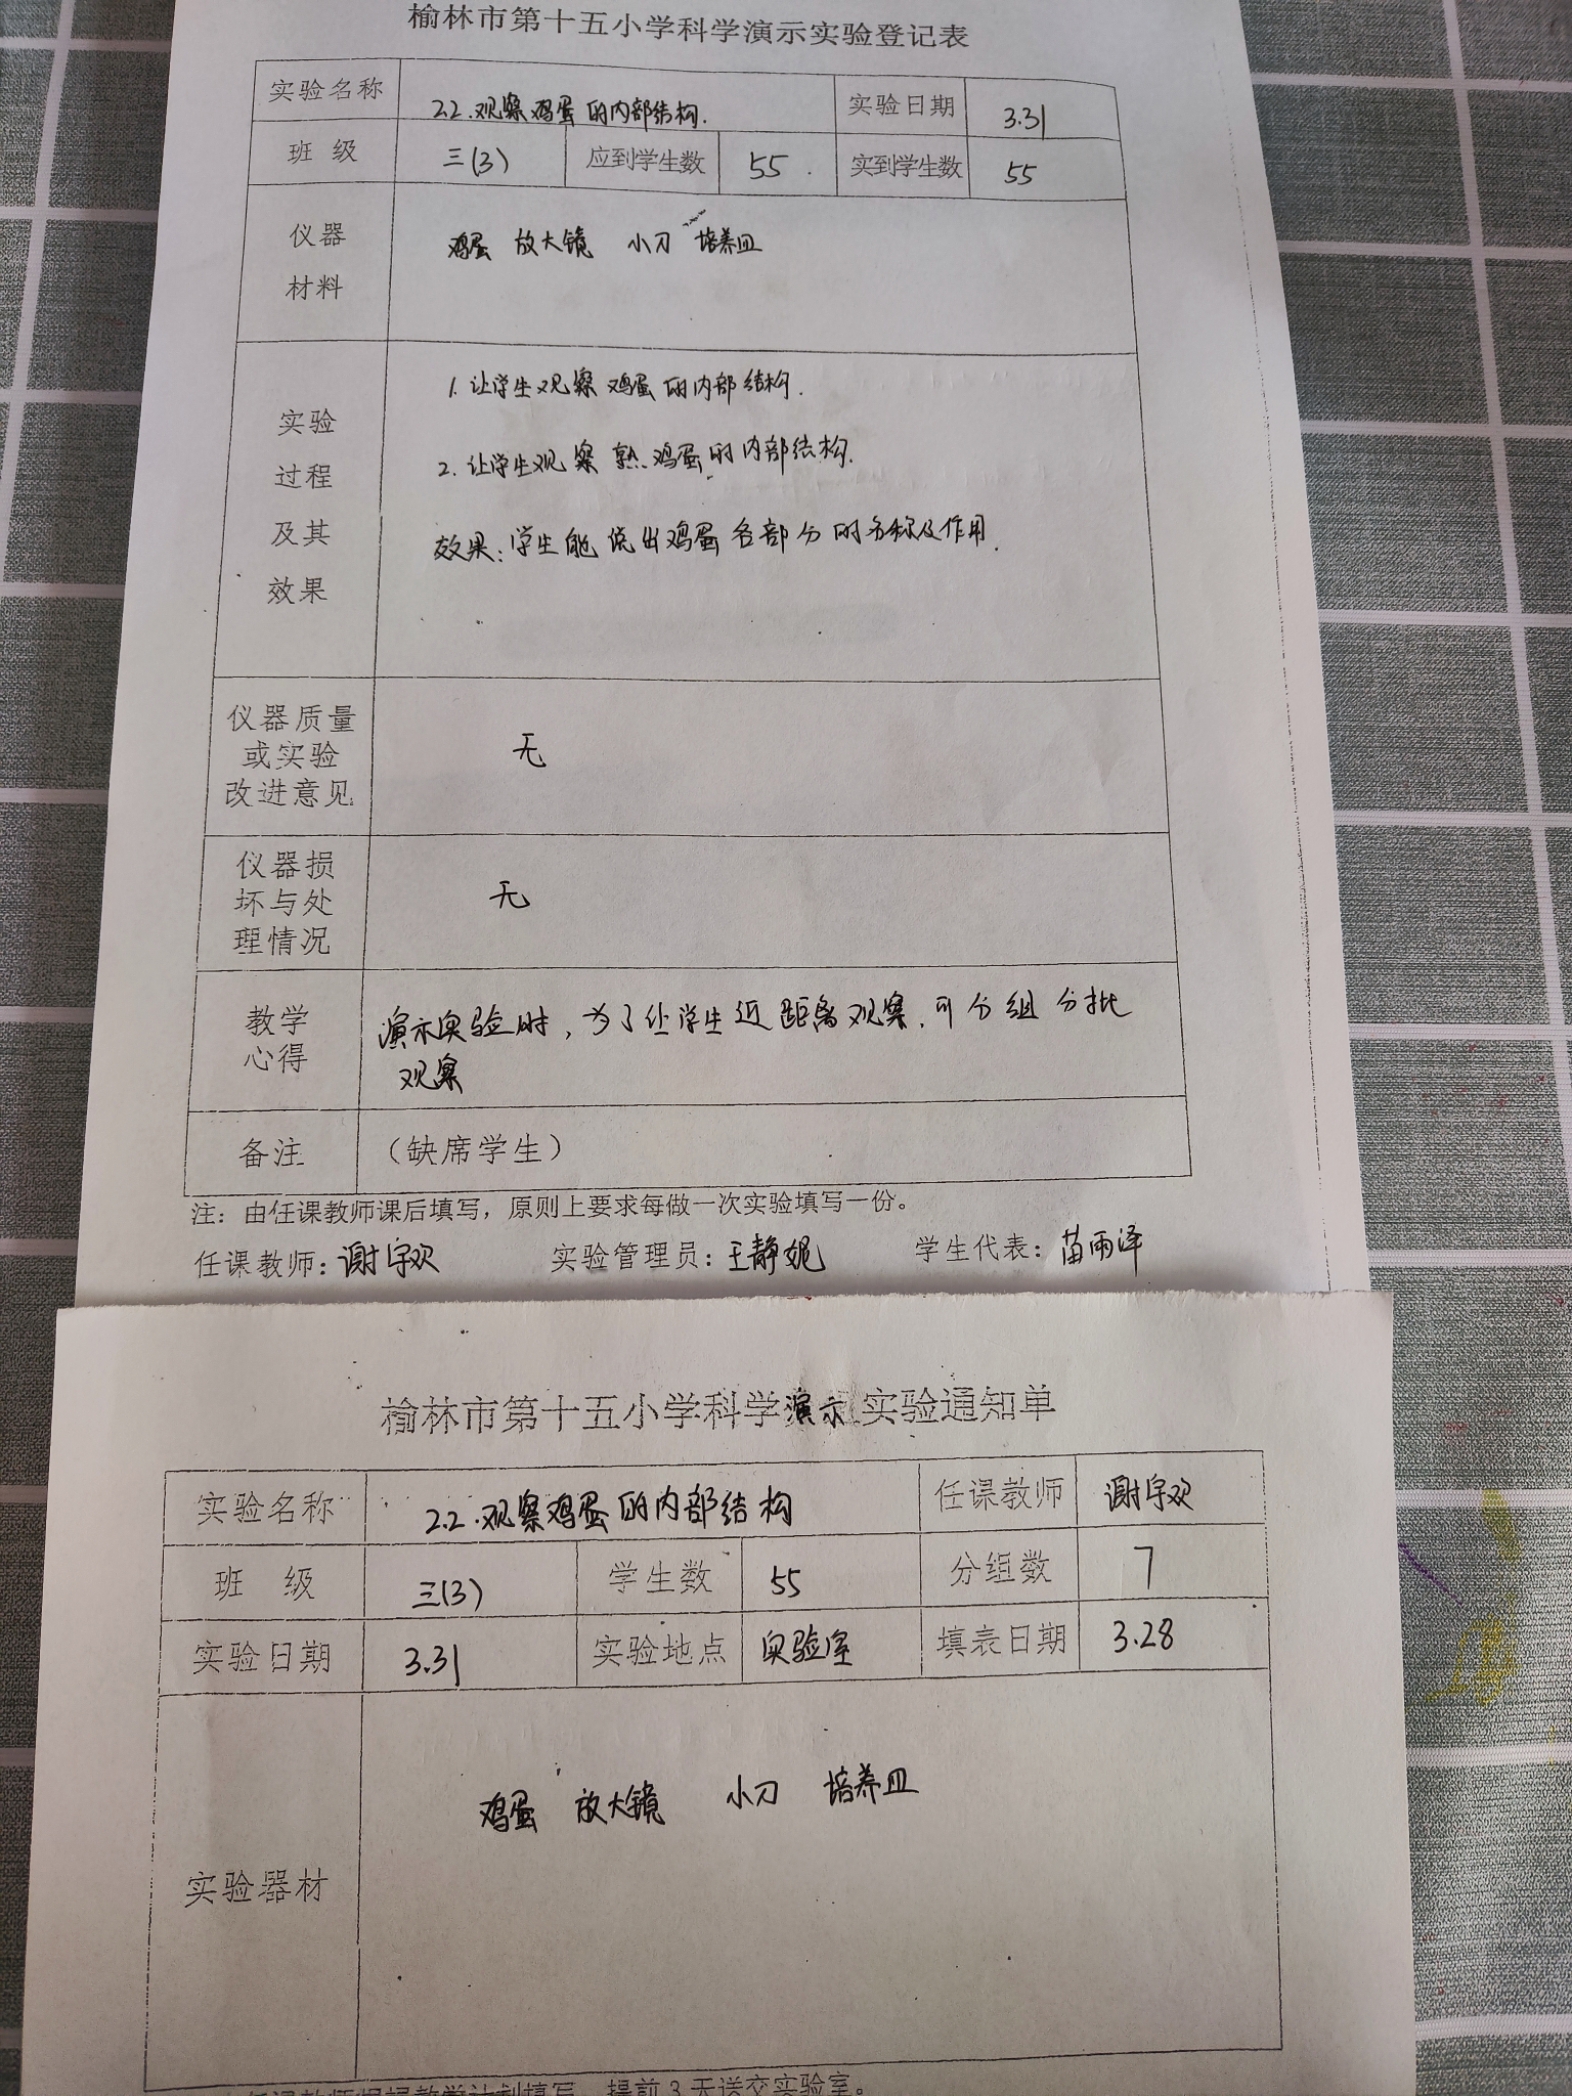 榆林市第十五小学科学演示实验登记表
实验名称 2.2.观察鸡蛋的内部结构. 实验日期 3.31
班 级 三(3) 应到学生数 55 实到学生数 55
仪器
材料
鸡蛋 放大镜 小刀 培养皿
实验
过程
及其
效果
1. 让学生观察鸡蛋的内部结构.
2. 让学生观察熟鸡蛋的内部结构.
效果:学生能说出鸡蛋各部分的名称及作用.
仪器质量
或实验
改进意见
无
仪器损
坏与处
理情况
无
教学
心得
演示实验时,为了让学生近距离观察,可分组分批
观察
备注 (缺席学生)
注:由任课教师课后填写,原则上要求每做一次实验填写一份。
任课教师:谢宇欢 实验管理员:王静妮 学生代表:苗雨泽
榆林市第十五小学科学演示实验通知单
实验名称 2.2.观察鸡蛋的内部结构 任课教师 谢宇欢
班 级 三(3) 学生数 55 分组数 7
实验日期 3.31 实验地点 实验室 填表日期 3.28
实验器材
鸡蛋 放大镜 小刀 培养皿
任课教师根据教学计划填写,提前3天送交实验室。